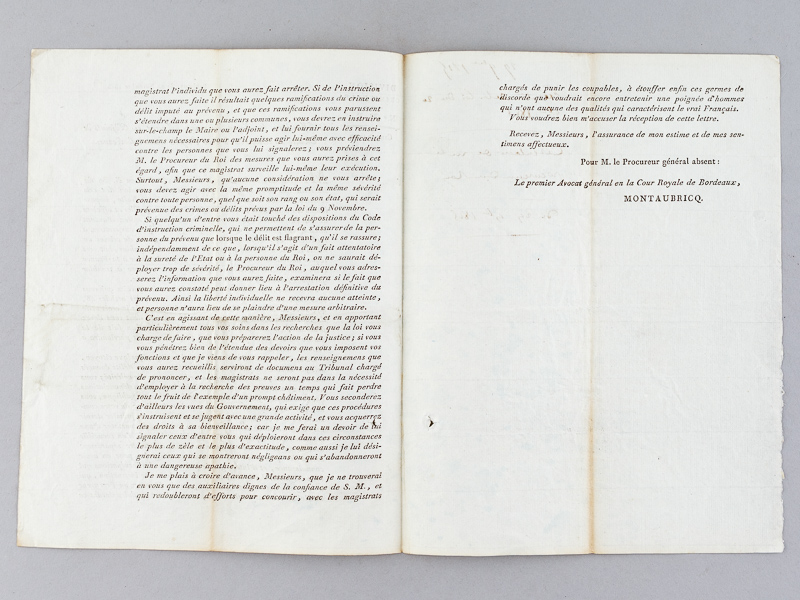 magistrat l'individu que vous aurez fait arrêter. Si de l'instruction
que vous aurez faite il résultait quelques ramifications du crime ou
délit imputé au prévenu, et que ces ramifications vous parussent
s'étendre dans une ou plusieurs communes, vous devrez en instruire
sur-le-champ le Maire ou l'adjoint, et lui fournir tous les rensei-
gnemens nécessaires pour qu'il puisse agir lui-même avec efficacité
contre les personnes que vous lui signalerez; vous préviendrez
M. le Procureur du Roi des mesures que vous aurez prises à cet
égard, afin que ce magistrat surveille lui-même leur exécution.
Surtout, Messieurs, qu'aucune considération ne vous arrête;
vous devez agir avec la même promptitude et la même sévérité
contre toute personne, quel que soit son rang ou son état, qui serait
prévenue des crimes ou délits prévus par la loi du 9 Novembre.
Si quelqu'un d'entre vous était touché des dispositions du Code
d'instruction criminelle, qui ne permettent de s'assurer de la per-
sonne du prévenu que lorsque le délit est flagrant, qu'il se rassure;
indépendamment de ce que, lorsqu'il s'agit d'un fait attentatoire
à la sureté de l'Etat ou à la personne du Roi, on ne saurait dé-
ployer trop de sévérité, le Procureur du Roi, auquel vous adres-
serez l'information que vous aurez faite, examinera si le fait que
vous aurez constaté peut donner lieu à l'arrestation définitive du
prévenu. Ainsi la liberté individuelle ne recevra aucune atteinte,
et personne n'aura lieu de se plaindre d'une mesure arbitraire.
C'est en agissant de cette manière, Messieurs, et en apportant
particulièrement tous vos soins dans les recherches que la loi vous
charge de faire, que vous préparerez l'action de la justice; si vous
vous pénétrez bien de l'étendue des devoirs que vous imposent vos
fonctions et que je viens de vous rappeler, les renseignemens que
vous aurez recueillis serviront de documens au Tribunal chargé
de prononcer, et les magistrats ne seront pas dans la nécessité
d'employer à la recherche des preuves un temps qui fait perdre
tout le fruit de l'exemple d'un prompt châtiment. Vous seconderez
d'ailleurs les vues du Gouvernement, qui exige que ces procédures
s'instruisent et se jugent avec une grande activité, et vous acquerrez
des droits à sa bienveillance; car je me ferai un devoir de lui
signaler ceux d'entre vous qui déploieront dans ces circonstances
le plus de zèle et le plus d'exactitude, comme aussi je lui dési-
gnerai ceux qui se montreront négligeans ou qui s'abandonneront
à une dangereuse apathie.
Je me plais à croire d'avance, Messieurs, que je ne trouverai
en vous que des auxiliaires dignes de la confiance de S. M., et
qui redoubleront d'efforts pour concourir, avec les magistrats
chargés de punir les coupables, à étouffer enfin ces germes de
discorde que voudrait encore entretenir une poignée d'hommes
qui n'ont aucune des qualités qui caractérisent le vrai Français.
Vous voudrez bien m'accuser la réception de cette lettre.
Recevez, Messieurs, l'assurance de mon estime et de mes sen-
timens affectueux.
Pour M. le Procureur général absent:
Le premier Avocat général en la Cour Royale de Bordeaux,
MONTAUBRICQ.